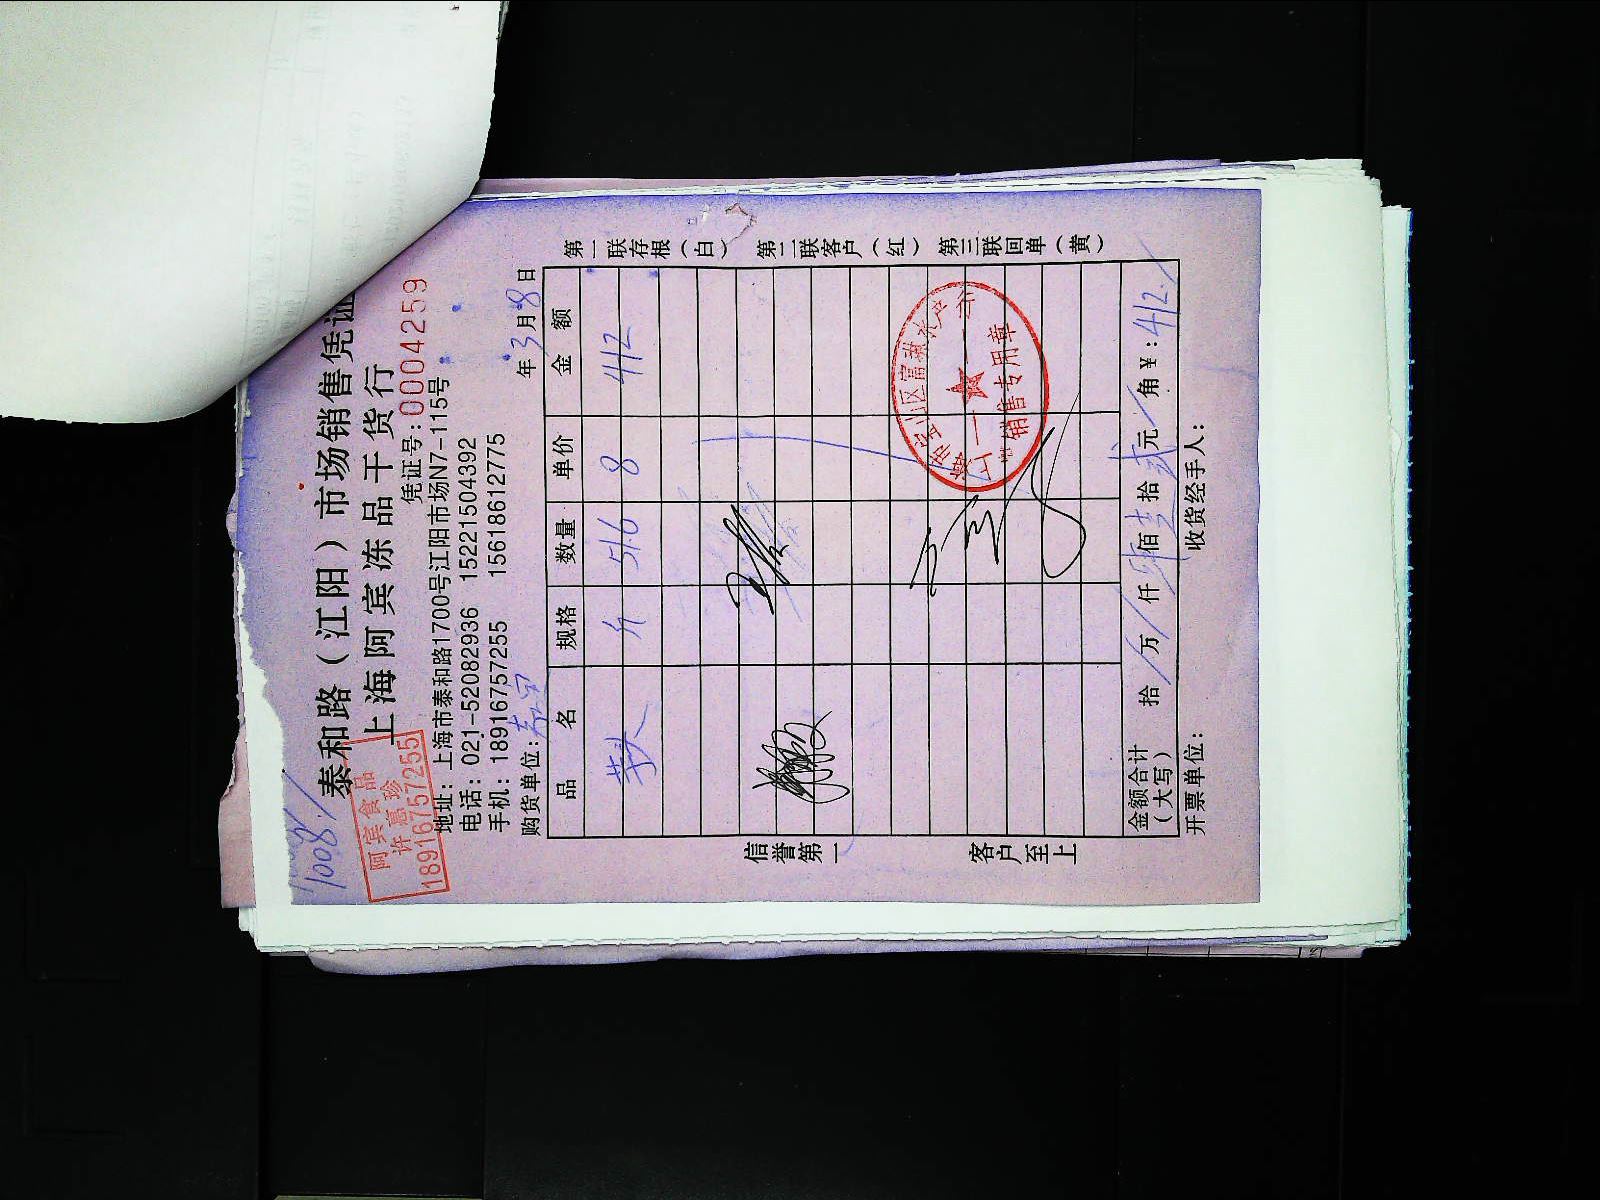 1008
泰和路（江阳）市场销售凭证
上海阿宾冻品干货行
阿宾食品
许惠珍
18916757255
凭证号:0004259
地址：上海市泰和路1700号江阳市场N7-115号
电话：021-52082936 15221504392
手机：18916757255 15618612775
购货单位: 年3月8日
品名 规格 数量 单价 金额
斤 516 8 412
第一联存根（白） 第二联客户（红） 第三联回单（黄）
信誉第一 客户至上
销售专用章
金额合计（大写） 拾 万 仟 肆佰壹拾贰元 角 ￥:412
开票单位： 收货经手人：